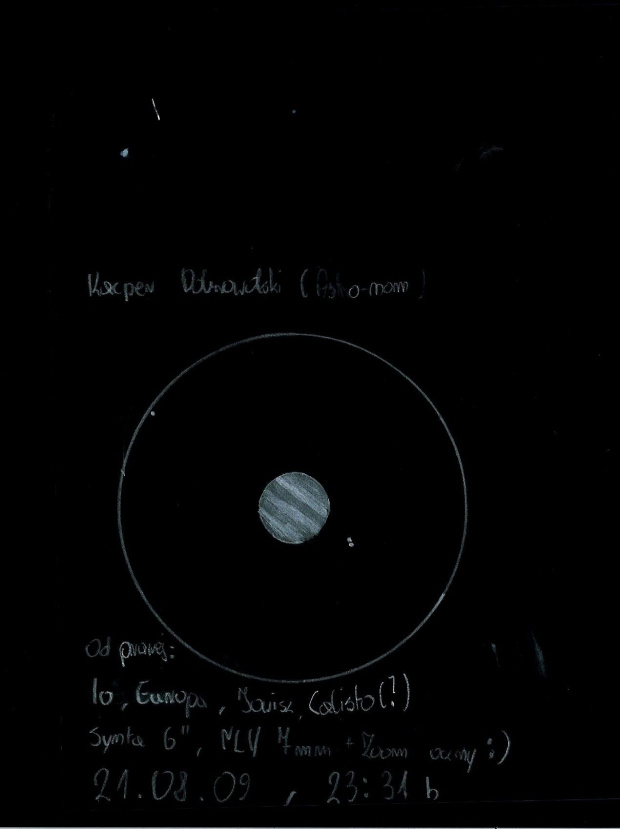 Kacper (Astro-mam)
Od prawej:
Io, Europa, Jowisz, Calisto(?)
Synta 6", 7mm + Zoom :)
21.08.09 , 23:31 h